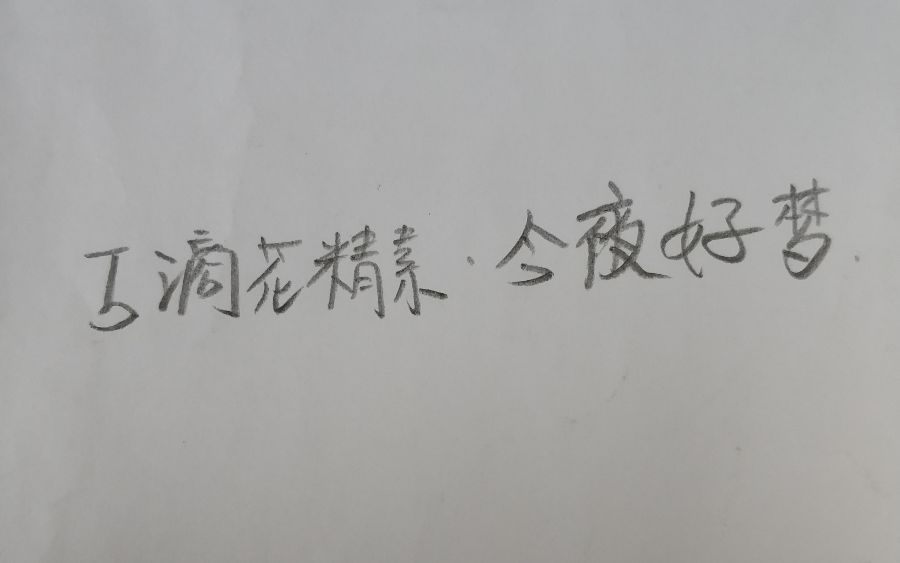 5滴花精素·今夜好梦.